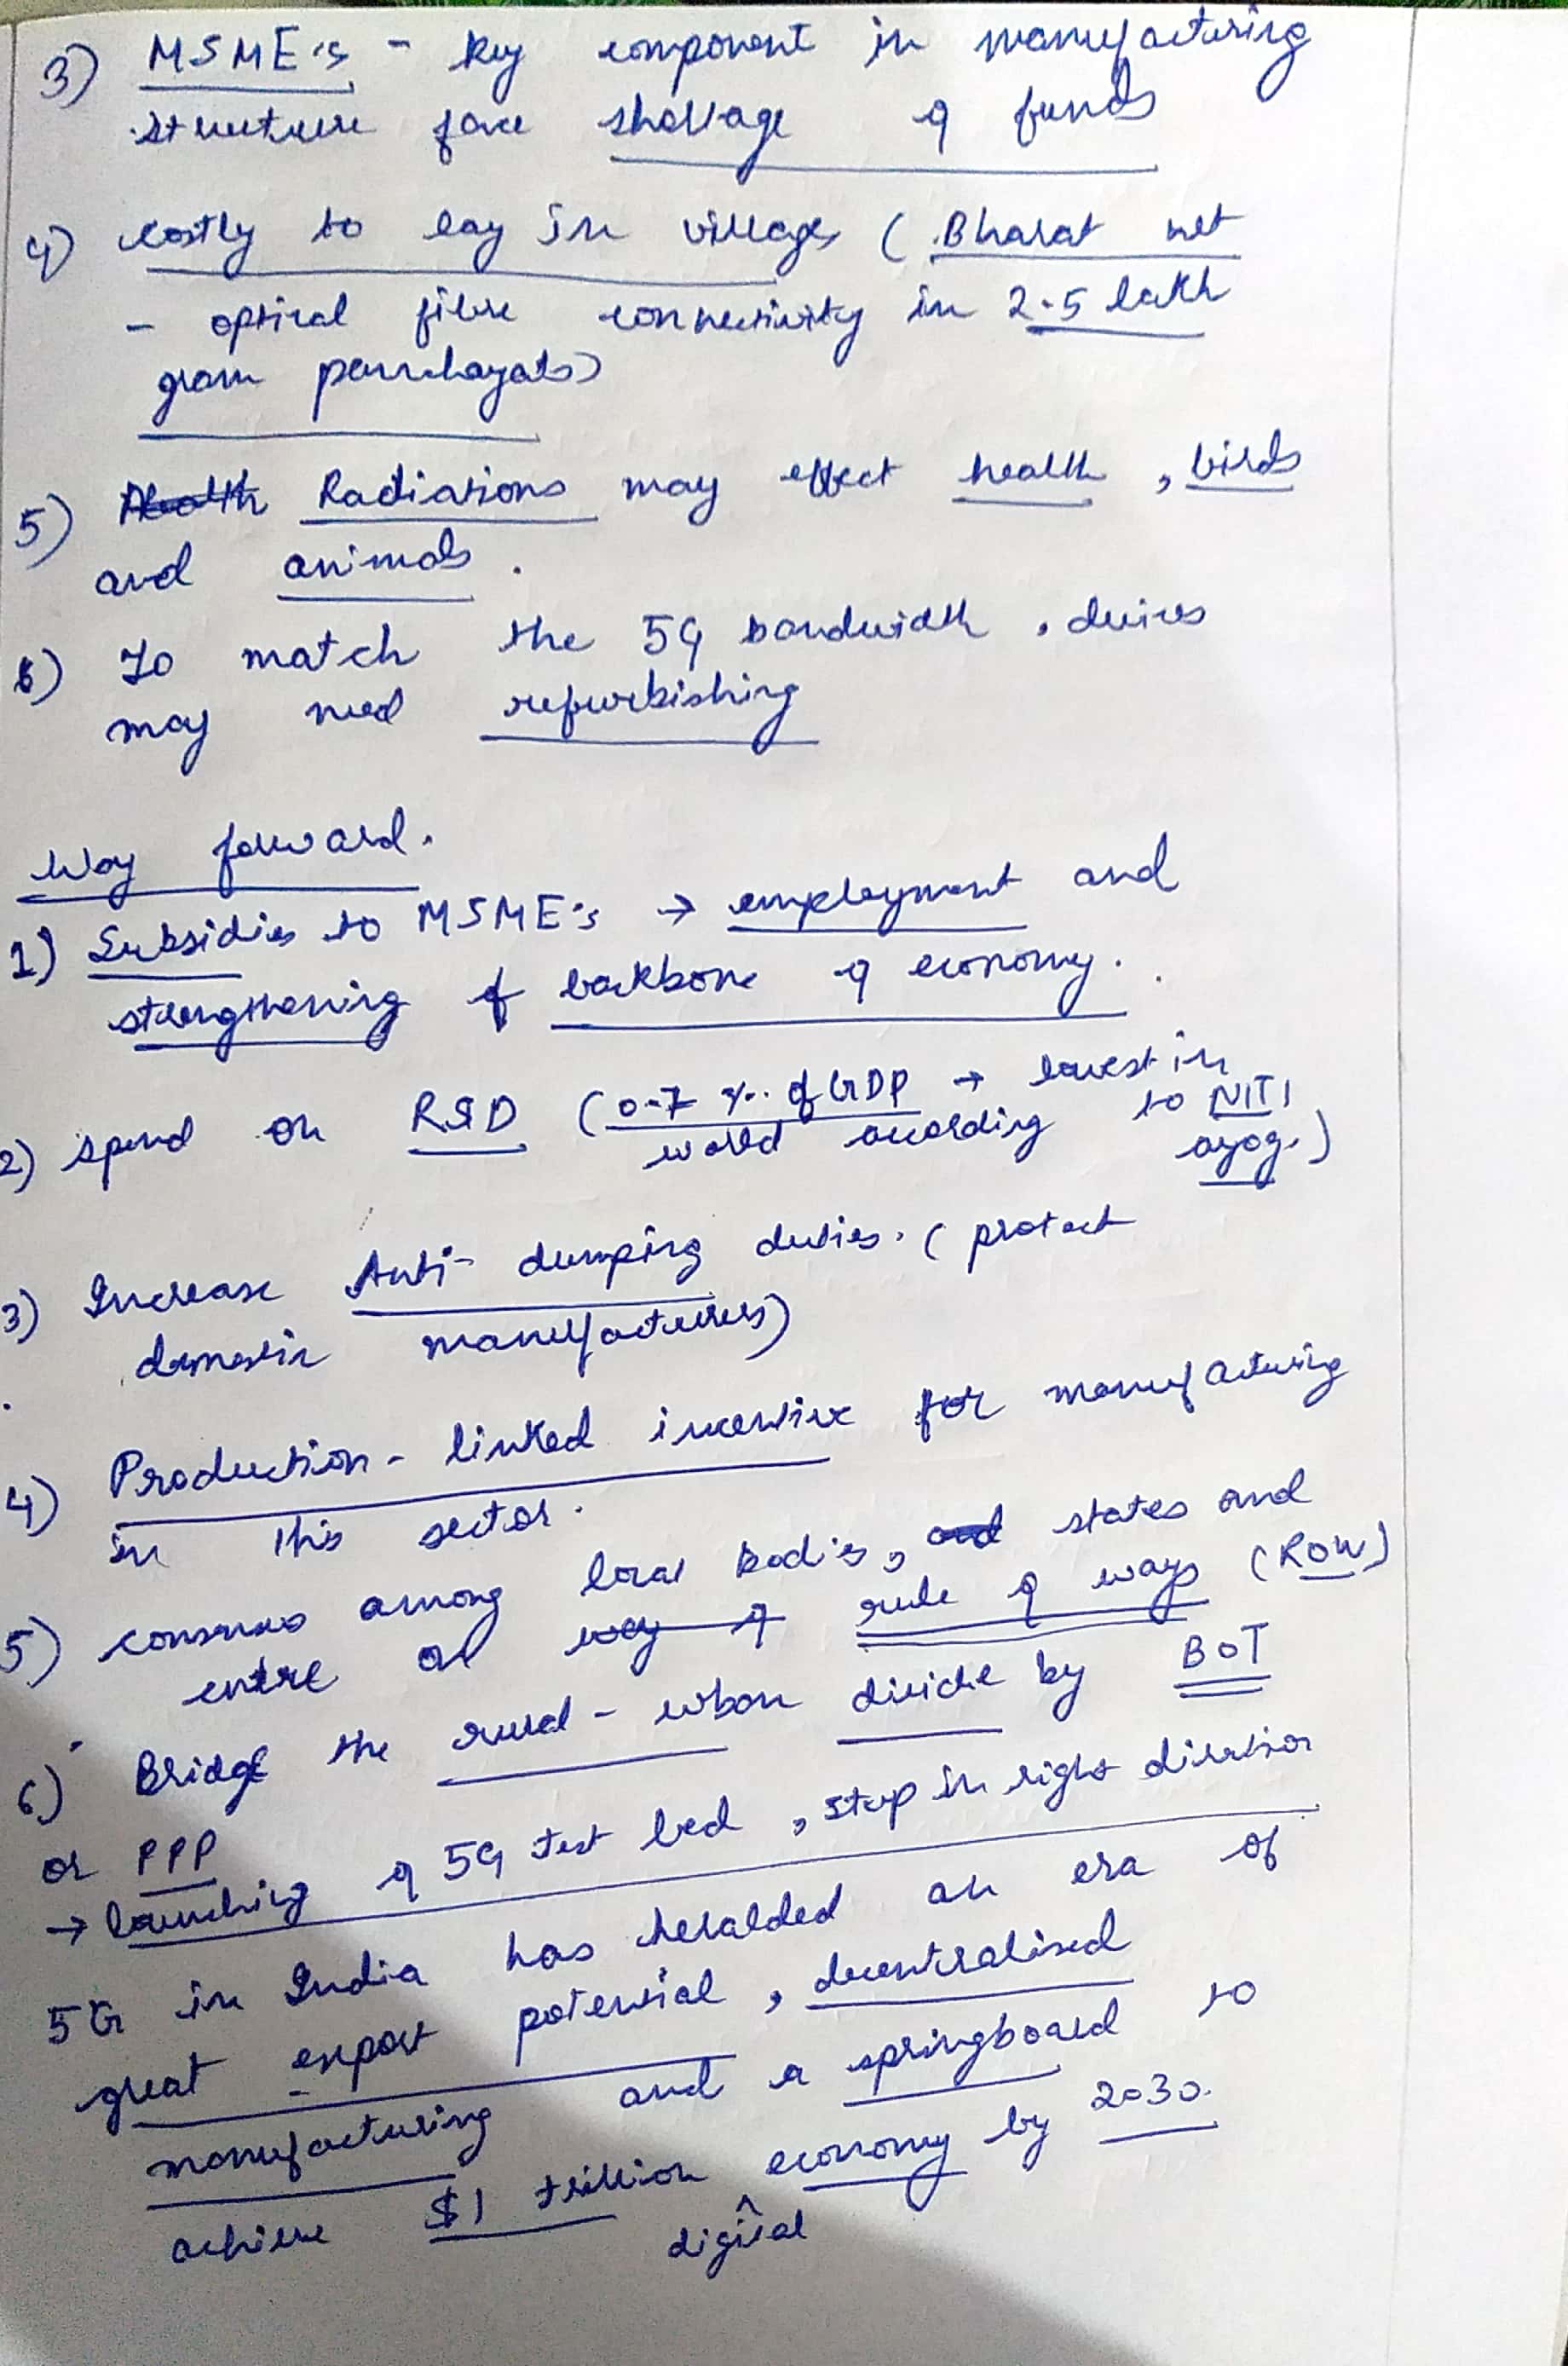 3) MSME's - key component in manufacturing
structure face shortage of funds
4) costly to lay in villages (Bharat net
- optical fibre connectivity in 2.5 lakh
gram panchayats)
5) Health Radiations may effect health, birds
and animals.
6) To match the 5G bandwidth, devices
may need refurbishing
Way forward.
1) Subsidies to MSME's → employment and
strengthening of backbone of economy.
2) spend on R&D (0.7 %. of GDP → lowest in
world according to NITI
ayog.)
3) Increase Anti-dumping duties. (protect
domestic manufacturers)
4) Production-linked incentive for manufacturing
in this sector.
5) consensus among local bodies, and states and
centre on way of rule of ways (ROW)
6) Bridge the rural-urban divide by BOT
or PPP
→ launching of 5G test bed, step in right direction
5G in India has heralded an era of
great export potential, decentralised
manufacturing and a springboard to
achieve $1 trillion ^ economy by 2030.
digital